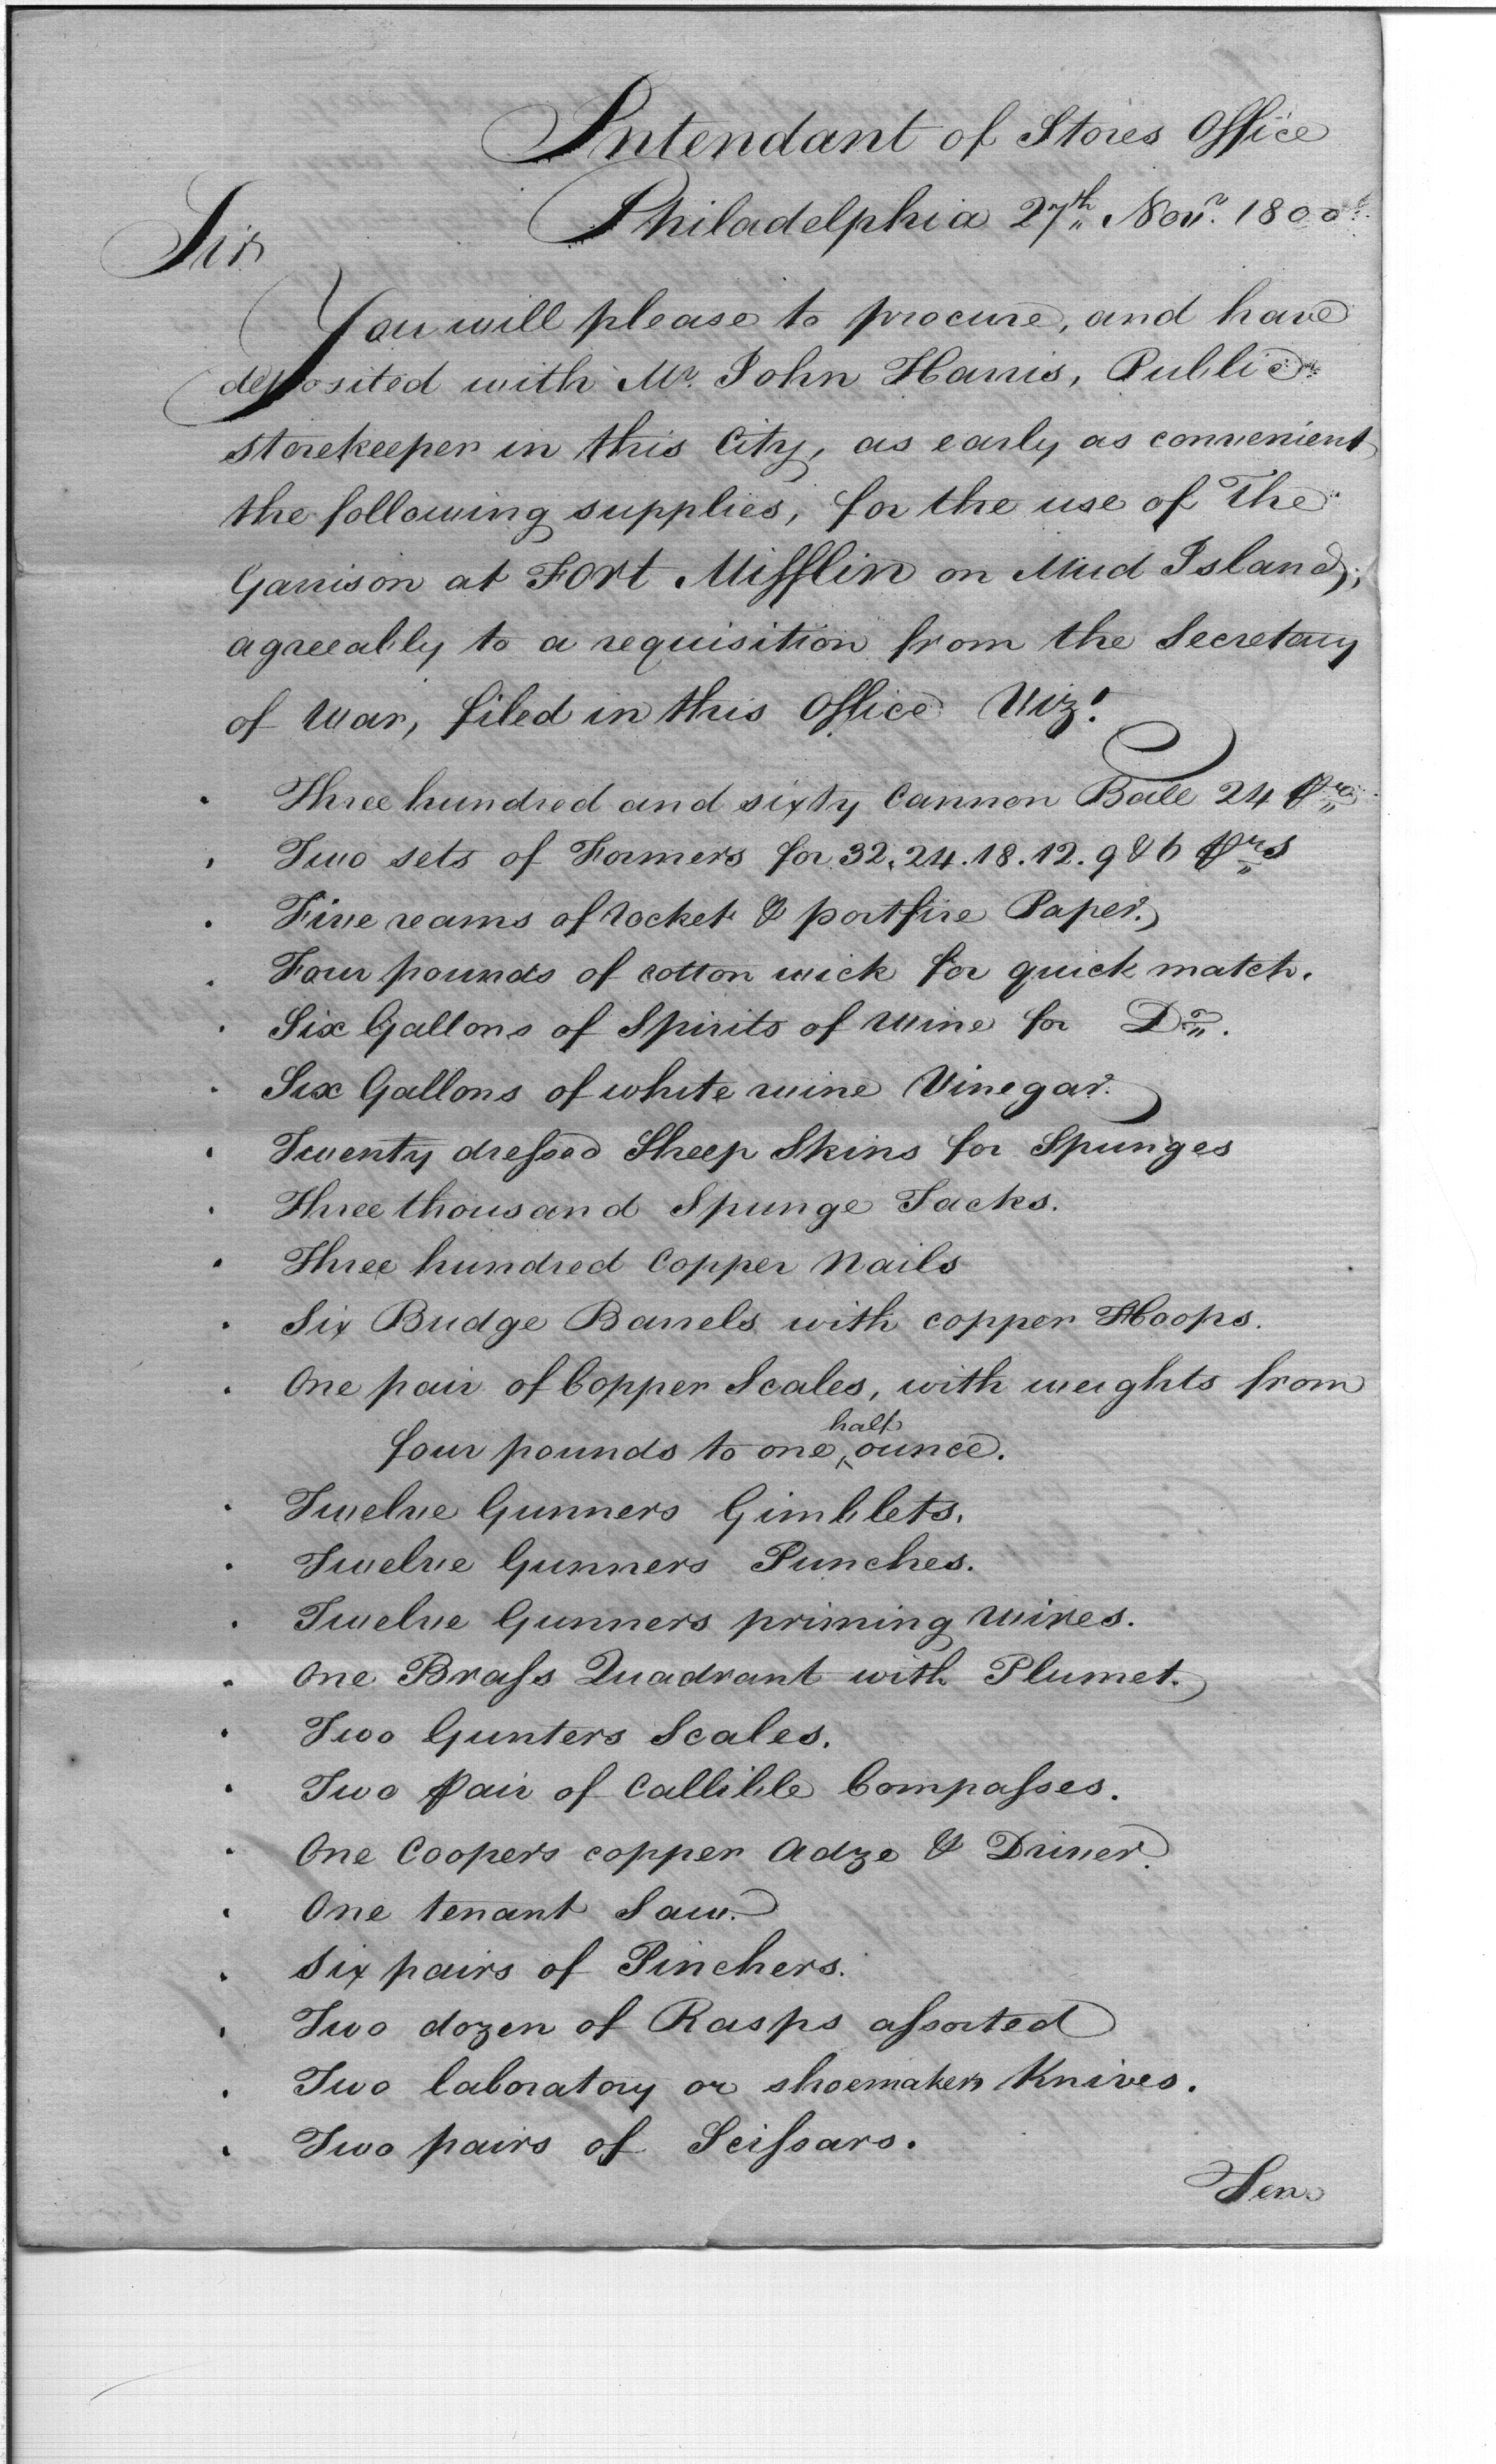 Intendant of Stores Office
Philadelphia 27th Novr. 1800
Sir
You will please to procure, and have
deposited with Mr. John Harris, Public
storekeeper in this City, as early as convenient
the following supplies, for the use of The
Garrison at Fort Mifflin on Mud Island;
agreeably to a requisition from the Secretary
of War, filed in this Office Vizt.
Three hundred and sixty Cannon Ball 24 prs
Two sets of Formers for 32. 24. 18. 12. 9 & 6 prs
Five reams of rocket & portfire Paper.
Four pounds of cotton wick for quick match.
Six Gallons of Spirits of Wine for Do.
Six Gallons of white wine Vinegar.
Twenty dressed Sheep Skins for Spunges
Three thousand Spunge Tacks.
Three hundred Copper Nails
Six Budge Barrels with copper Hoops.
One pair of Copper Scales, with weights from
four pounds to one half ounce.
Twelve Gunners Gimblets.
Twelve Gunners Punches.
Twelve Gunners priming Wires.
One Brass Quadrant with Plumet.
Two Gunters Scales.
Two Pair of Callible Compasses.
One Coopers copper Adze & Driver.
One tenant Saw.
Six pairs of Pinchers.
Two dozen of Rasps assorted
Two laboratory or shoemakers Knives.
Two pairs of Scissars.
Ten